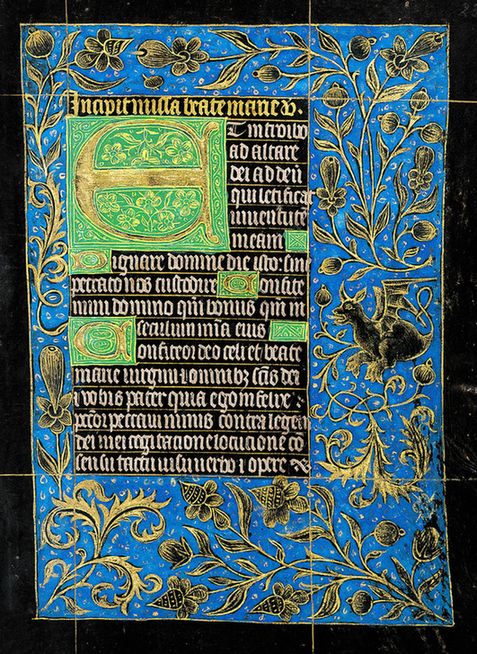 Incipit missa beate marie v.
Et introibo
ad altare
dei ad deū
qui letificat
iuuentutē
meam
Dignare domine die isto sine
peccato nos custodire Confite
mini domino qm̄ bonus qm̄ in
seculum mīa eius
Confiteor deo celi et beate
marie virgini ⁊ omnibꝫ scīs dei
⁊ vobis pater quia ego miser
pctōr peccaui nimis contra legem
dei mei cogitatione locutione cō
sensu tactu visu verbo ⁊ opere